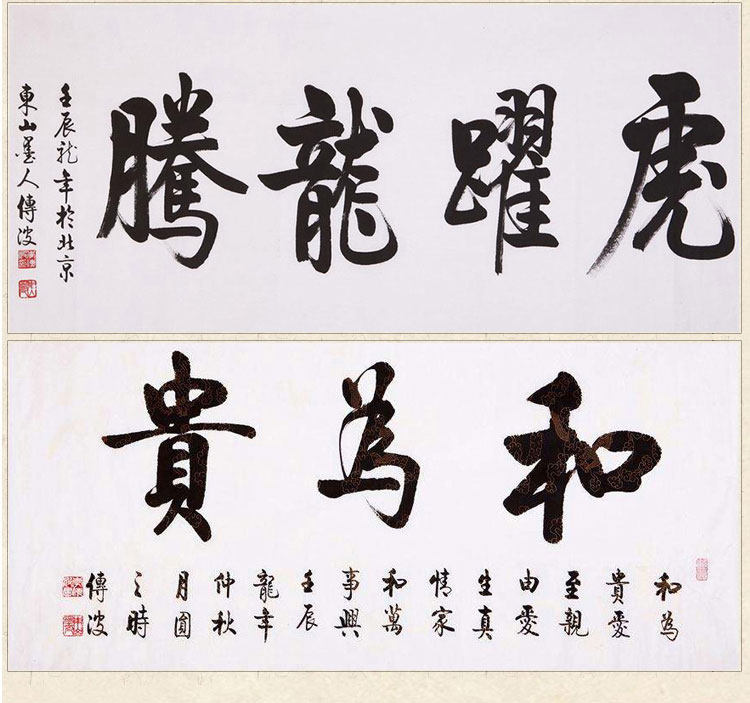 虎躍龍騰
壬辰龍年於北京
東山墨人傳波
和為貴
和為
貴愛
至親
由愛
生真
情家
和萬
事興
壬辰
龍年
仲秋
月圓
之時
傳波